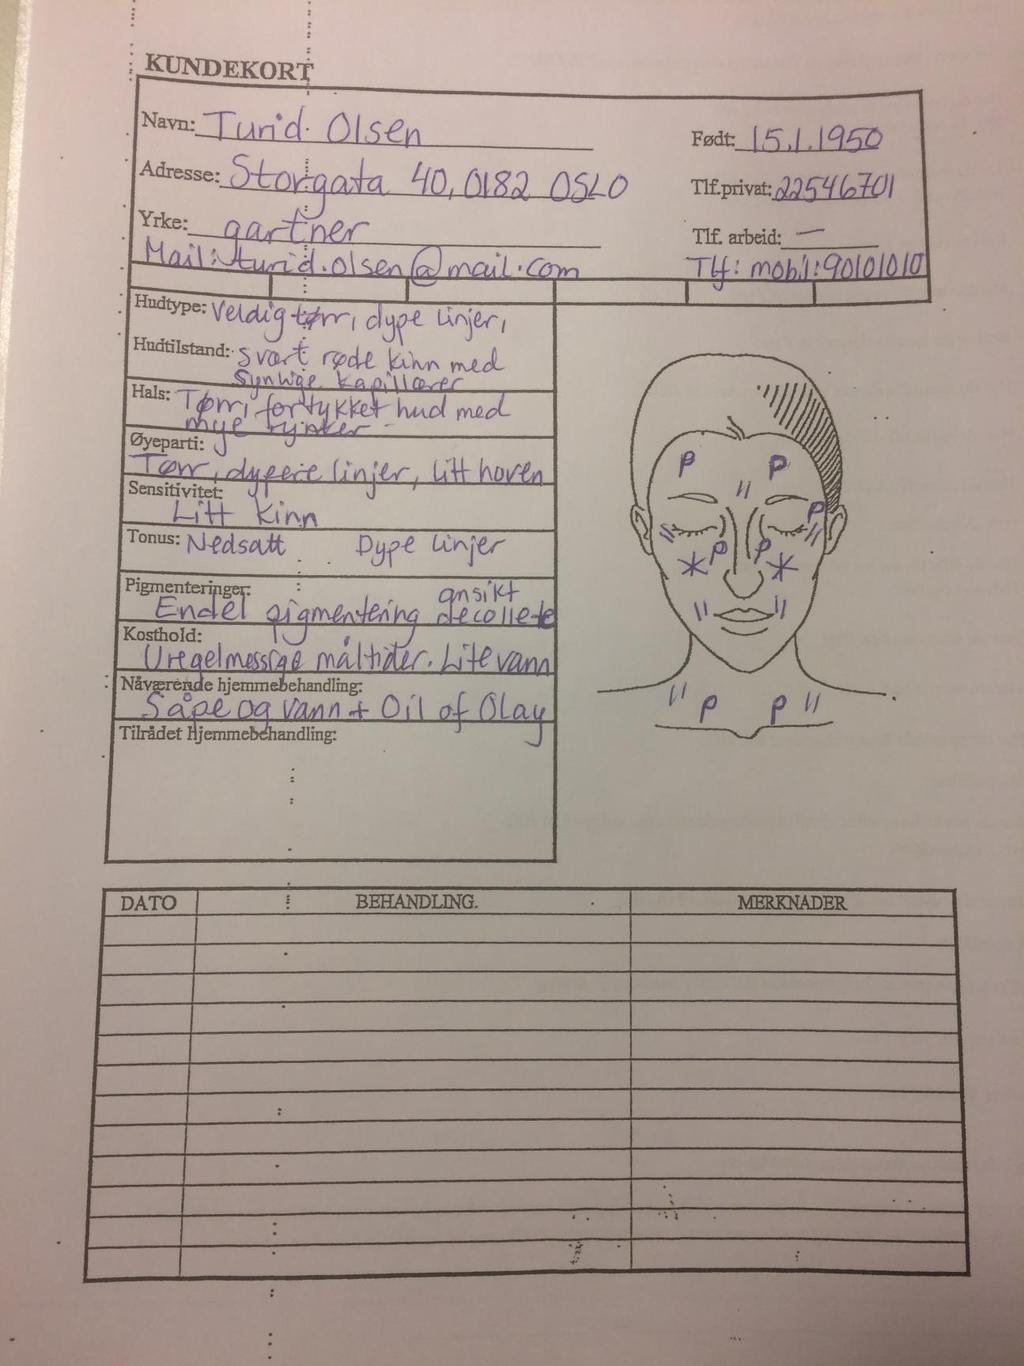 KUNDEKORT
Navn: Turid Olsen Født: 15.1.1950
Adresse: Storgata 40, 0182 OSLO Tlf.privat: 22546701
Yrke: gartner Tlf. arbeid: —
Mail: turid.olsen@mail.com Tlf: mobil: 90101010
Hudtype: Veldig tørr, dype linjer,
Hudtilstand: svært røde kinn med
synlige kapillærer
Hals: Tørr, fortykket hud med
mye rynker -
Øyeparti:
Tørr, dypere linjer, litt hoven
Sensitivitet:
Litt kinn
Tonus: Nedsatt Dype linjer
Pigmenteringer: ansikt
Endel pigmentering decollete
Kosthold:
Uregelmessige måltider. Lite vann
Nåværende hjemmebehandling:
Såpe og vann + Oil of Olay
Tilrådet Hjemmebehandling:
P P
P
P P
P P
DATO BEHANDLING. MERKNADER